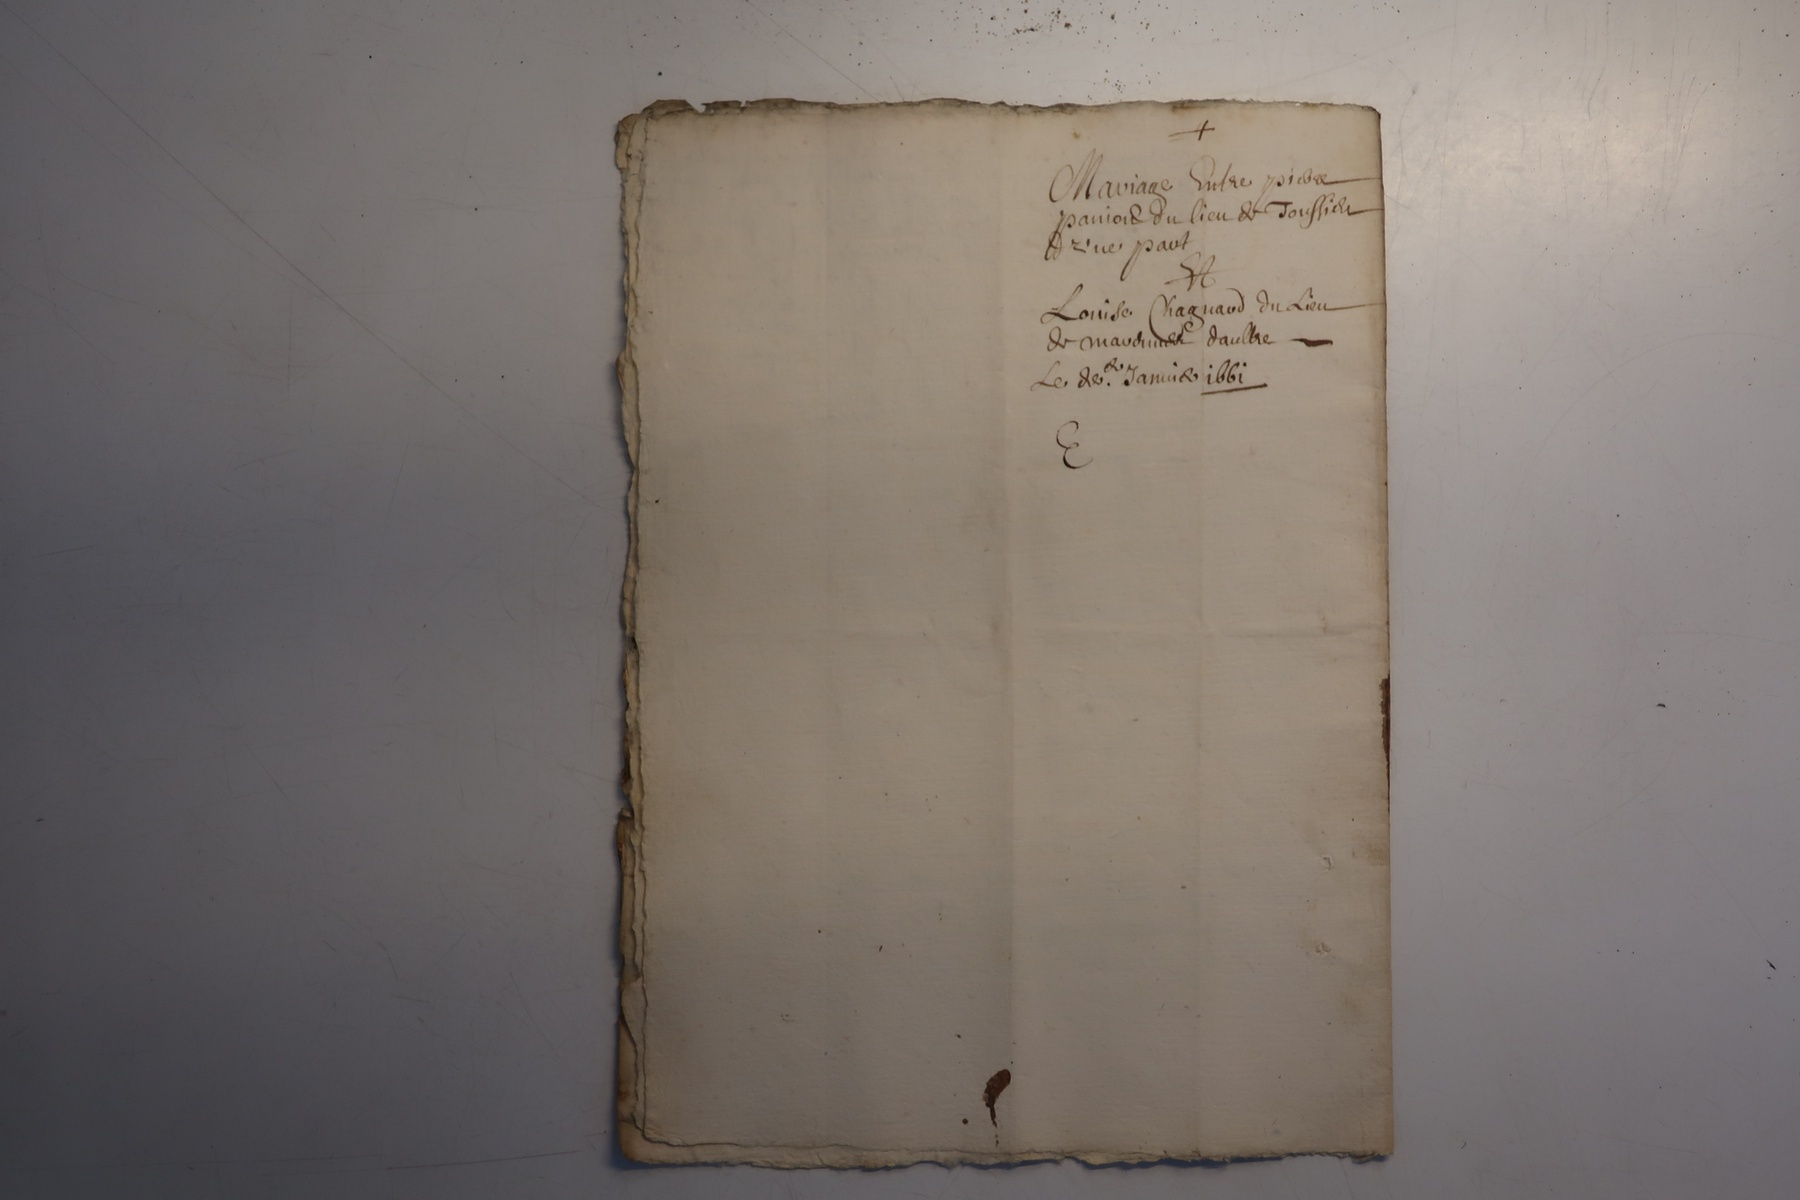 +
Mariage Entre pierre
paniord du lieu de Toussieu
d'vne part
Et
Louise Chagnard du Lieu
de daultre
Le Januier 1661
E